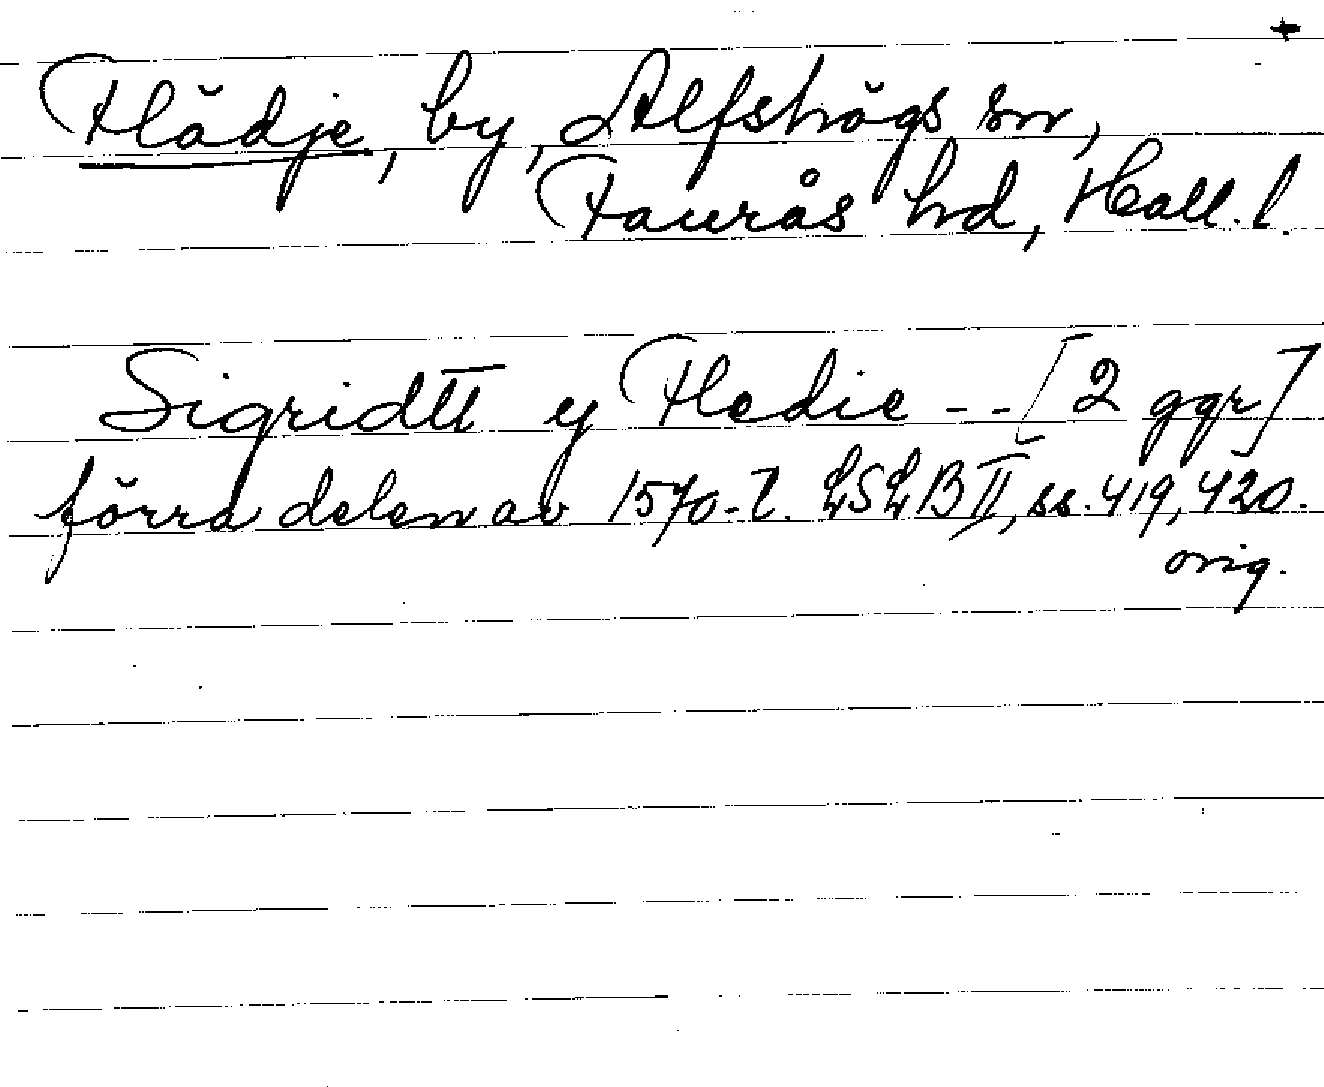 Flädje, by, Alfshögs sn,
Faurås hd, Hall. l.
Sigridtt y Fledie -- [2 ggr]
förra delen av 1570-t. LSLB II, ss. 419, 420.
orig.